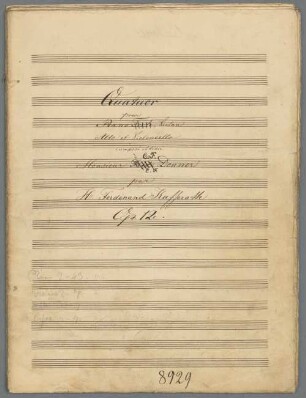 Quatuor
pour
Piano
Alto et Violoncelle
composé et dédié
C.F.
Monsieur Donner
C.H.
par
H. Ferdinand Kufferath
Op. 12.
8929